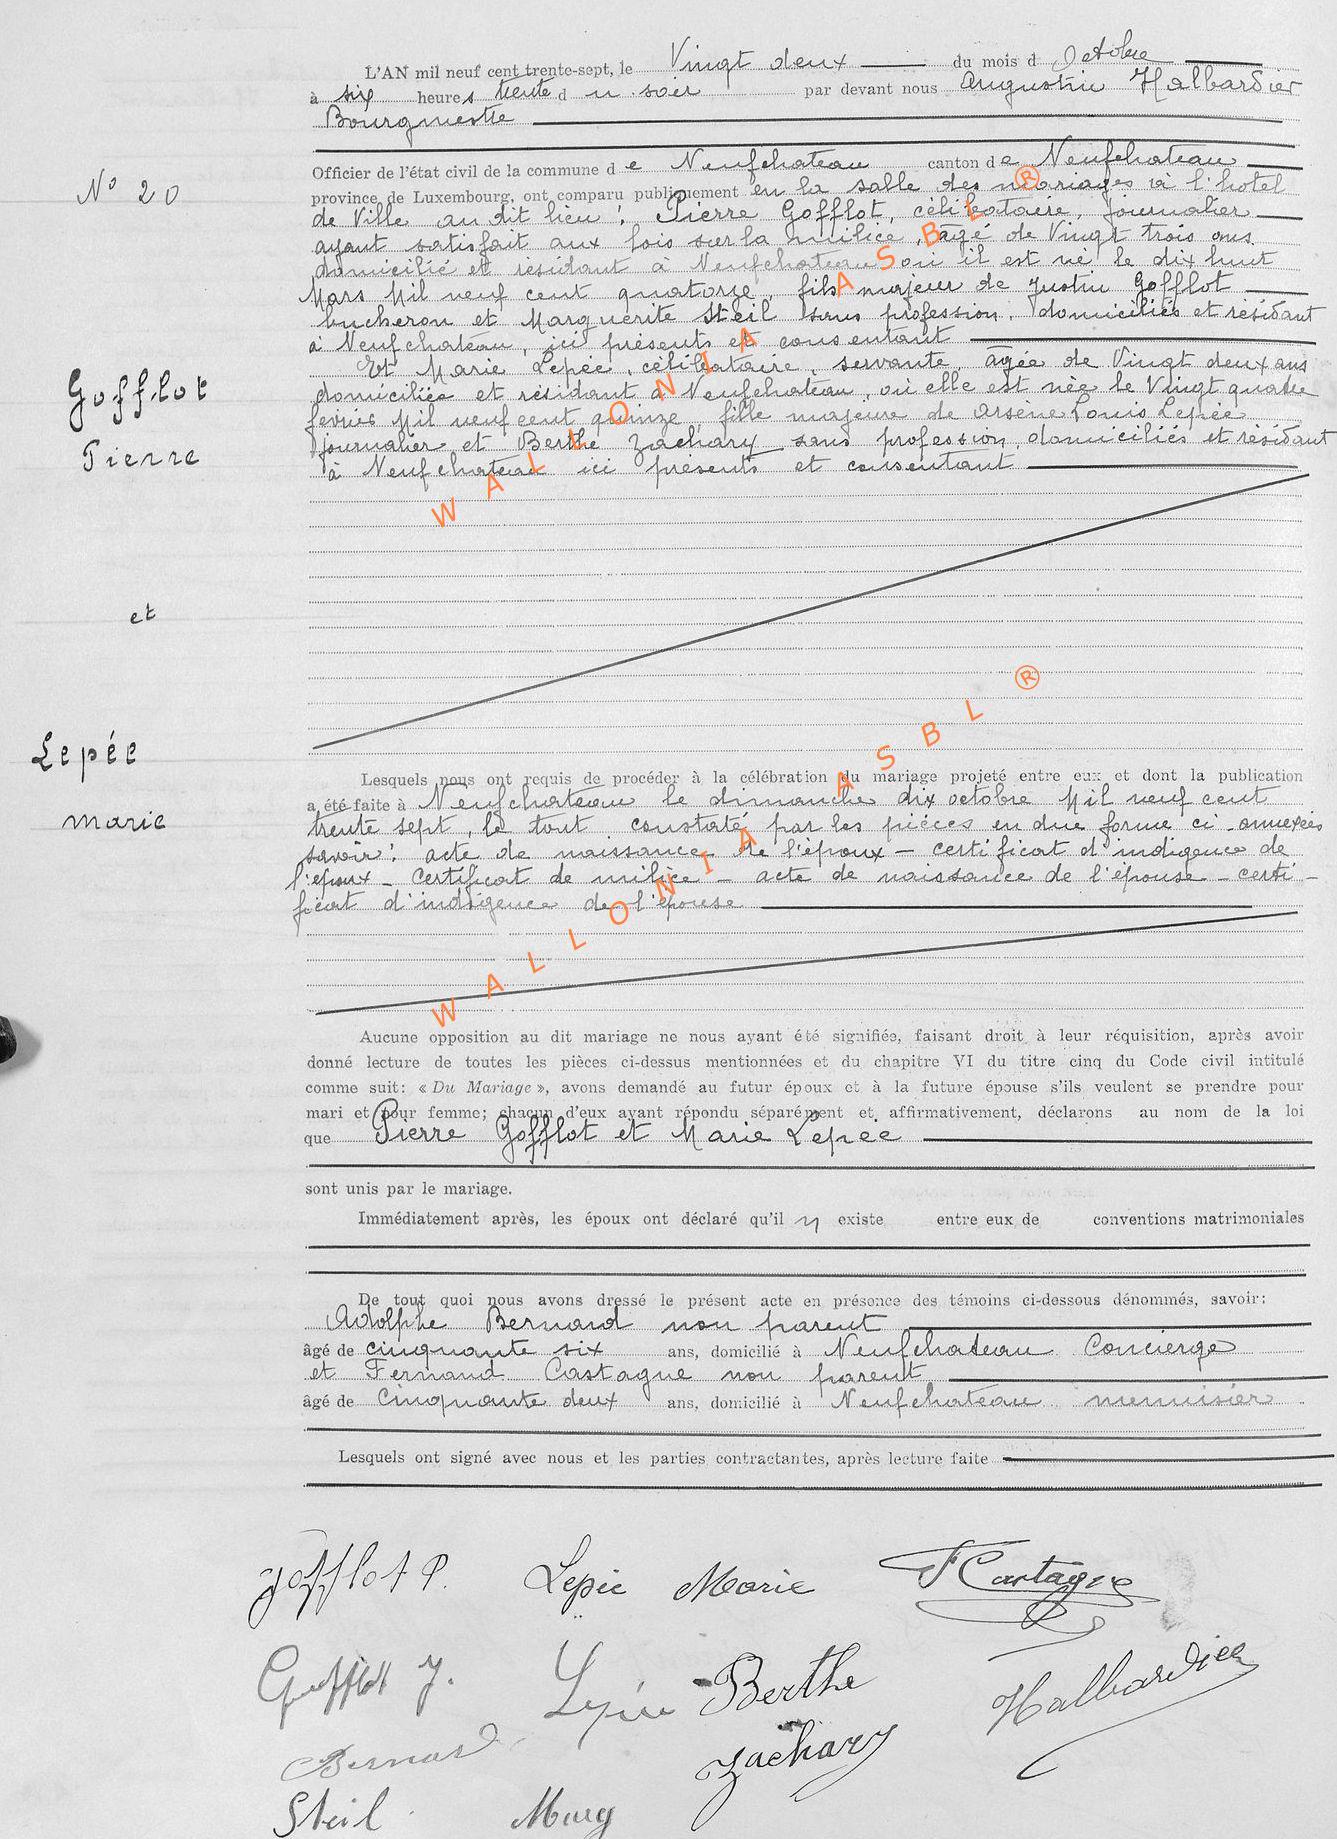 L'AN mil neuf cent trente-sept, le Vingt deux du mois d Octobre
à six heures trente d u soir par devant nous Augustin Halbardier
Bourgmestre
Officier de l'état civil de la commune d e Neufchateau canton de Neufchateau
N° 20
province de Luxembourg, ont comparu publiquement en la salle des mariages à l'hotel
de Ville au dit lieu : Pierre Gofflot, célibataire, journalier
ayant satisfait aux lois sur la milice, âgé de Vingt trois ans
domicilié et résidant à Neufchateau où il est né le dix huit
Mars Mil neuf cent quatorze, fils majeur de Justin Gofflot
bucheron et Marguerite Steil sans profession, domiciliés et résidant
à Neufchateau, ici présents et consentant
Et Marie Lepée, célibataire, servante, âgée de Vingt deux ans
Gofflot
domiciliée et résidant à Neufchateau, où elle est née le Vingt quatre
fevrier Mil neuf cent quinze, fille majeure de Arsène Louis Lepée
journalier et Berthe Zachary sans profession domiciliés et résidant
Pierre
à Neufchateau ici présents et consentant
et
Lepée
Marie
Lesquels nous ont requis de procéder à la célébration du mariage projeté entre eux et dont la publication
a été faite à Neufchateau le dimanche dix octobre Mil neuf cent
trente sept, le tout constaté par les pièces en due forme ci-annexées
savoir : acte de naissance de l'époux - certificat d'indigence de
l'époux - certificat de milice - acte de naissance de l'épouse - certi-
ficat d'indigence de l'épouse
WALLONIA ASBL ®
WALLONIA ASBL ®
Aucune opposition au dit mariage ne nous ayant été signifiée, faisant droit à leur réquisition, après avoir
donné lecture de toutes les pièces ci-dessus mentionnées et du chapitre VI du titre cinq du Code civil intitulé
comme suit: « Du Mariage », avons demandé au futur époux et à la future épouse s'ils veulent se prendre pour
mari et pour femme; chacun d'eux ayant répondu séparément et affirmativement, déclarons au nom de la loi
que Pierre Gofflot et Marie Lepée
sont unis par le mariage.
Immédiatement après, les époux ont déclaré qu'il n existe entre eux de conventions matrimoniales
De tout quoi nous avons dressé le présent acte en présence des témoins ci-dessous dénommés, savoir:
Adolphe Bernard non parent
âgé de cinquante six ans, domicilié à Neufchateau Concierge
et Fernand Castagne non parent
âgé de cinquante deux ans, domicilié à Neufchateau menuisier
Lesquels ont signé avec nous et les parties contractantes, après lecture faite
Gofflot P. Lepée Marie F Castagne
Gofflot J. Lepée Berthe Halbardier
Bernard Zachary
Steil Marg